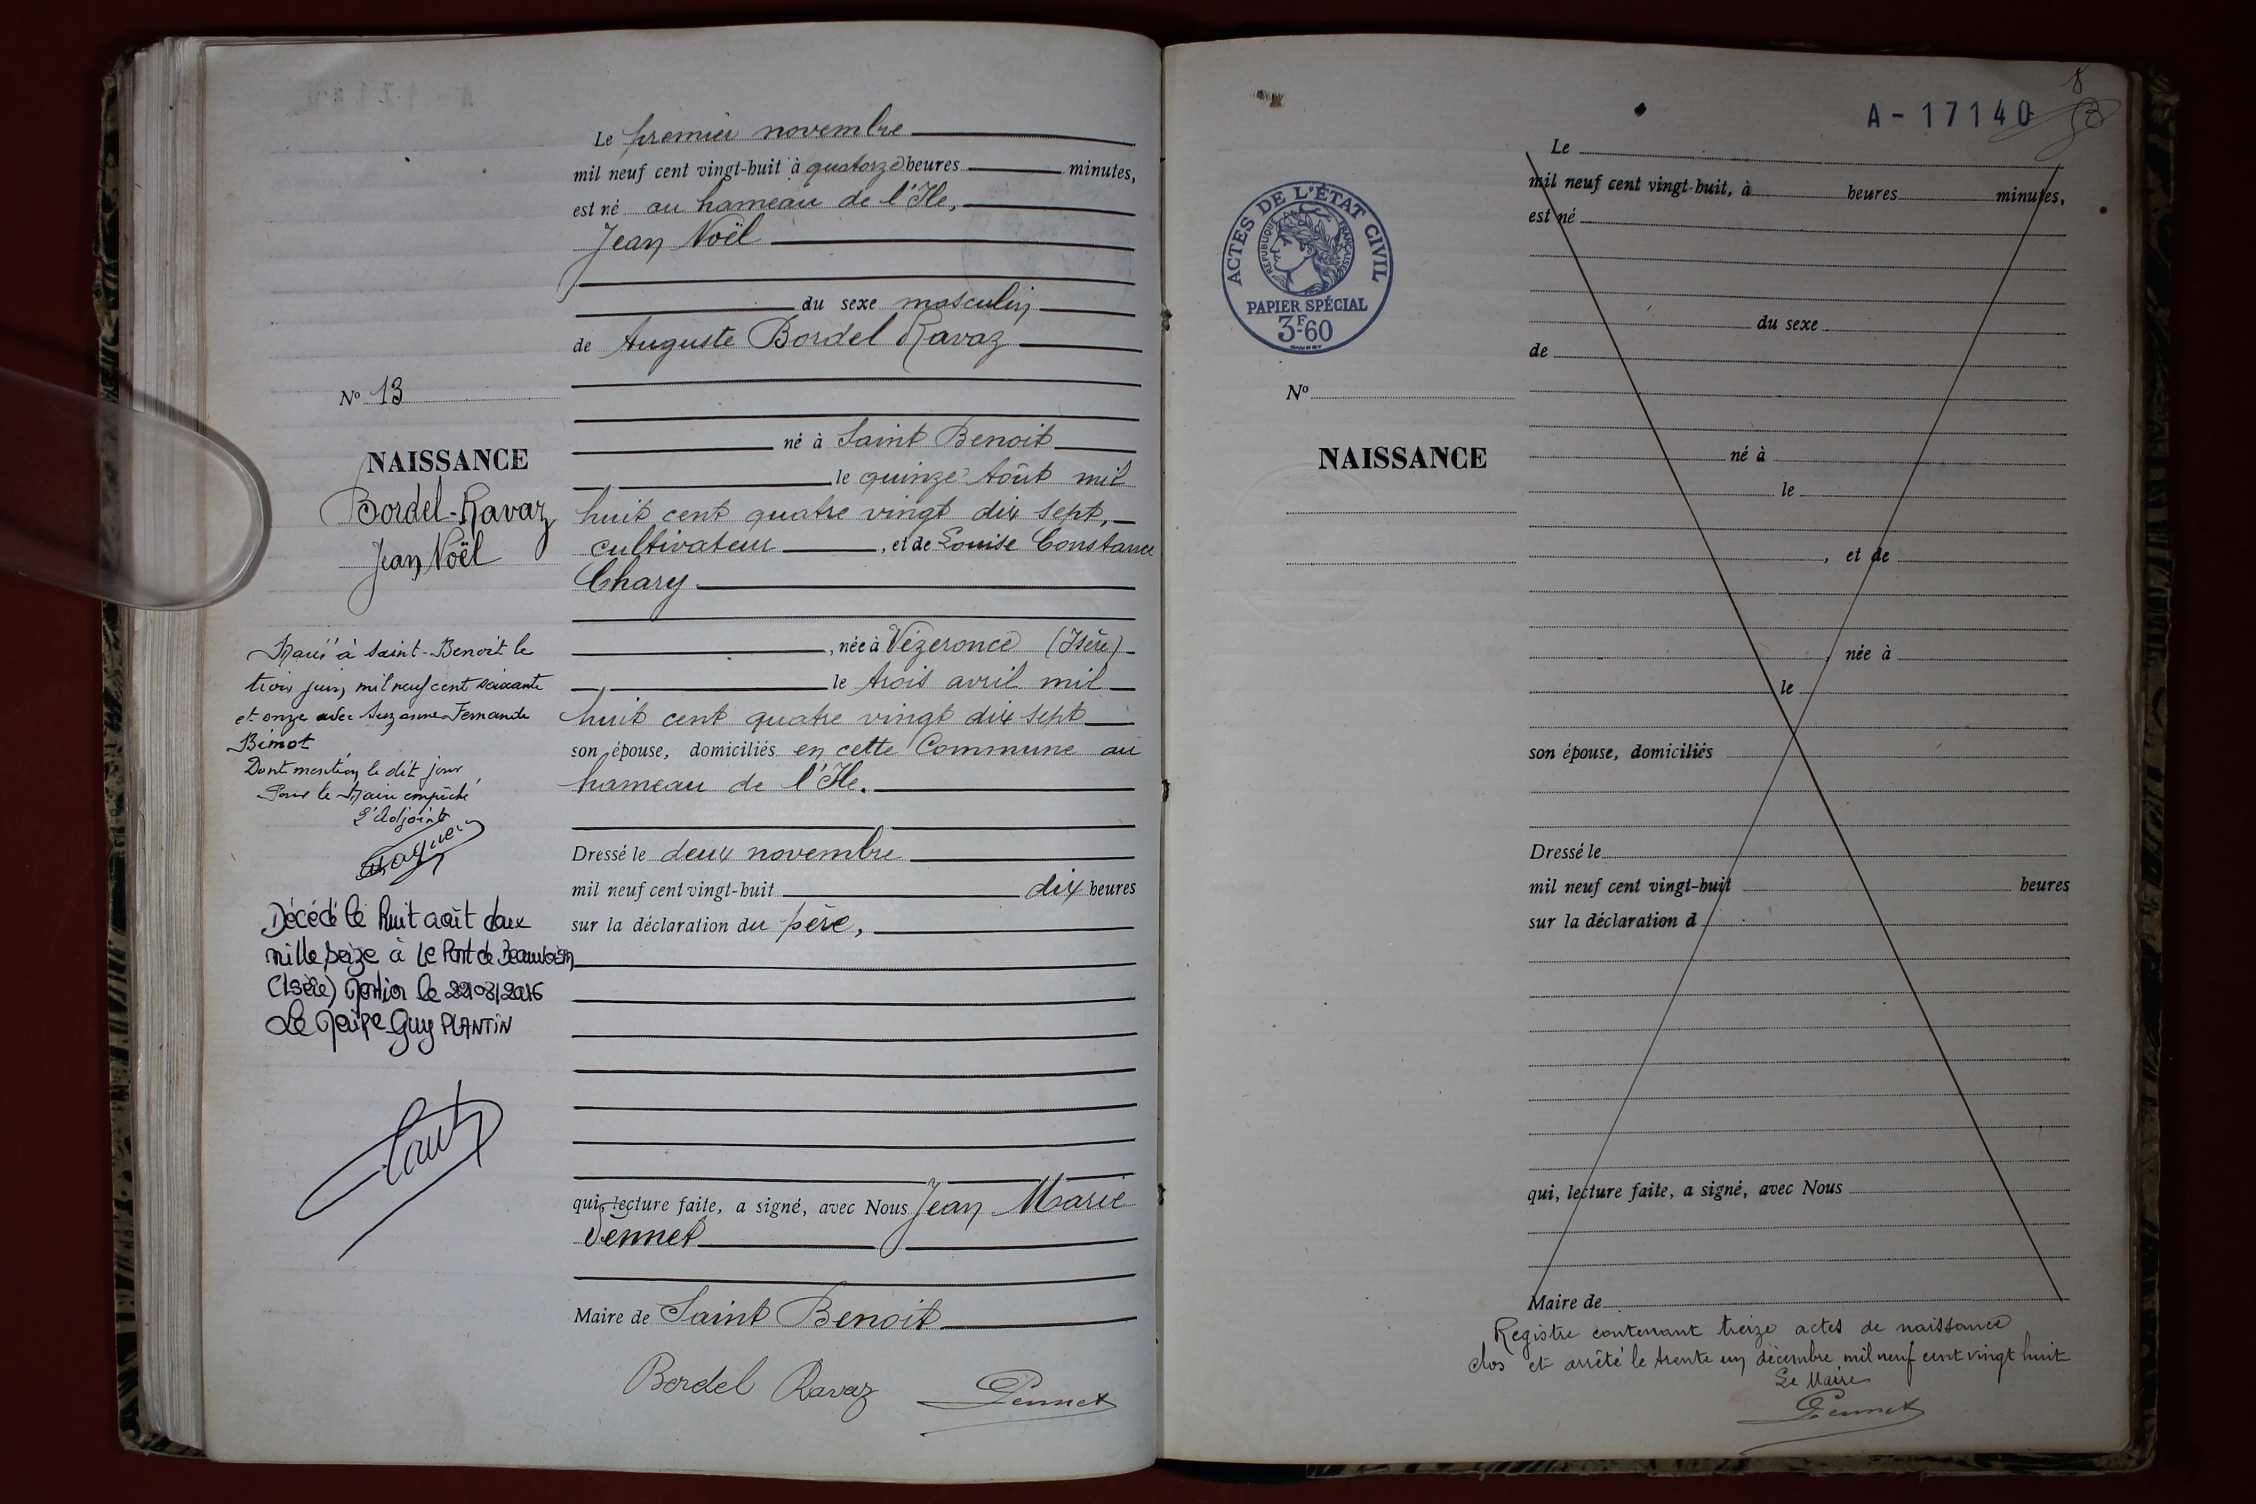 Le premier novembre
mil neuf cent vingt-huit à quatorze heures minutes,
est né au hameau de l'Ile,
Jean Noël
du sexe masculin
de Auguste Bordel Ravaz
né à Saint Benoit
le quinze Août mil
huit cent quatre vingt dix sept,
cultivateur, et de Louise Constance
Chary
, née à Vézeronce (Isère)
le trois avril mil
huit cent quatre vingt dix sept
son épouse, domiciliés en cette Commune au
hameau de l'Ile.
Dressé le deux novembre
mil neuf cent vingt-huit dix heures
sur la déclaration du père,
qui, lecture faite, a signé, avec Nous Jean Marie
Pennet
Maire de Saint Benoit
Bordel Ravaz Pennet
No 13
NAISSANCE
Bordel-Ravaz
Jean Noël
Marié à Saint-Benoit le
trois juin mil neuf cent soixante
et onze avec Suzanne Fernande
Bimot
Dont mention le dit jour
Pour le Maire empêché
L'Adjoint
Décédé le huit août deux
mille seize à Le Pont de Beauvoisin
(Isère) Mention le
Le Maire Guy PLANTIN
8
A-17140
ACTES DE L'ÉTAT CIVIL
RÉPUBLIQUE FRANÇAISE
PAPIER SPÉCIAL
3F60
No
NAISSANCE
Le
mil neuf cent vingt-huit, à heures minutes,
est né
du sexe
de
né à
le
, et de
, née à
le
son épouse, domiciliés
Dressé le
mil neuf cent vingt-huit heures
sur la déclaration d
qui, lecture faite, a signé, avec Nous
Maire de
Registre contenant treize actes de naissance
clos et arrêté le trente un décembre mil neuf cent vingt huit
Le Maire
Pennet